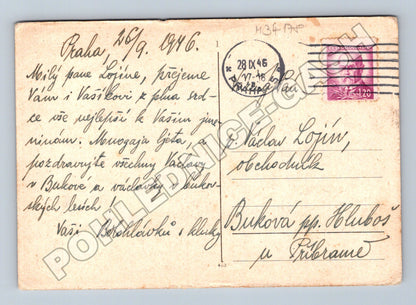 Praha, 26/9. 1946.
Milý pane Lojíne, přejeme
Vám i Vašíkovi z plna srd-
ce vše nejlepší k Vašim jme-
ninám. Mnogaja ljeta, a
pozdravujte všechny Václavy
v Bukové a václavky v bukov-
ských lesích!
Vaši Borohlávků i kluky
M34 A5
28.IX.46
17-18
PRAHA
1.20
Pan
Václav Lojín,
obchodník
Buková pp. Hluboš
u Příbramě
POHLEDNICE-CASH